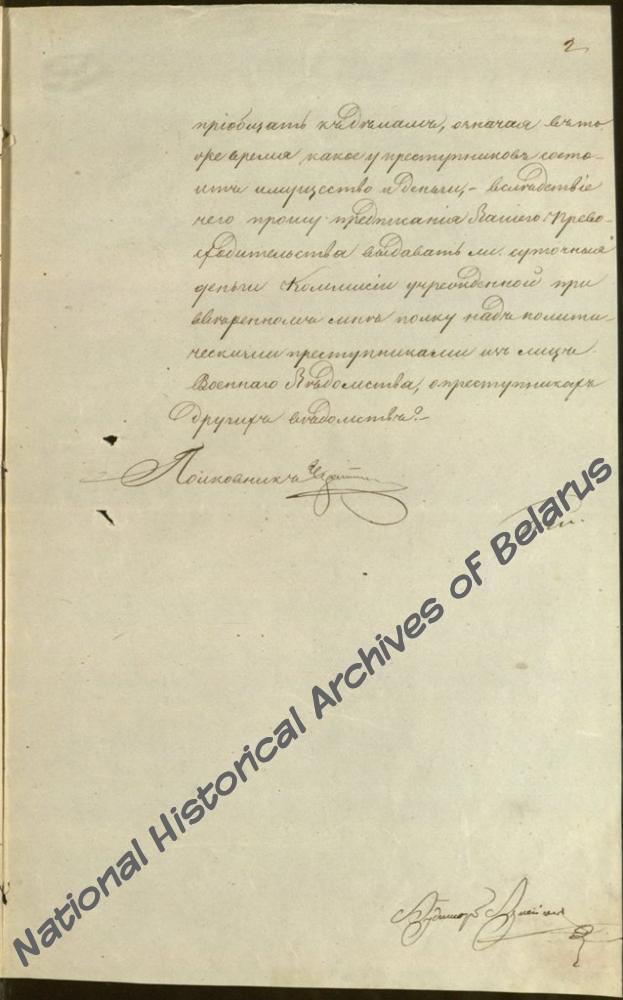 2
пріобщать къ дѣламъ, означая въ то
же время, какое у преступниковъ состо-
итъ имущество и деньги,- вслѣдствіе
чего прошу предписанія Вашего Прево-
сходительства выдавать ли суточныя
деньги Коммисіи учрежденной при
ввѣренномъ мнѣ полку надъ полити-
ческими преступниками изъ лицъ
Военнаго Вѣдомства, о преступникахъ
другихъ вѣдомствъ?-
Полковникъ
Аудиторъ
National Historical Archives of Belarus